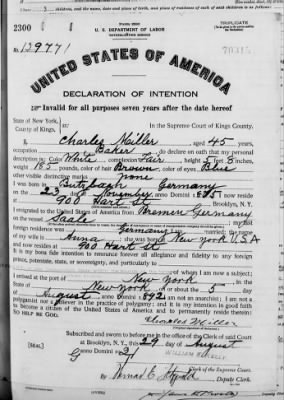 TRIPLICATE
2300
U. S. DEPARTMENT OF LABOR
No. 129771
UNITED STATES OF AMERICA
DECLARATION OF INTENTION
Invalid for all purposes seven years after the date hereof
State of New York,
County of Kings, ss:
In the Supreme Court of Kings County.
I, Charles Miller, aged 45 years,
occupation Baker, do declare on oath that my personal
description is: Color White, complexion Fair, height 5 feet 8 inches,
weight 185 pounds, color of hair Brown, color of eyes Blue
other visible distinctive marks None
I was born in Butzbach Germany
on the 23 day of November, anno Domini 1875; I now reside
at 900 Hart St, Brooklyn, N. Y.
I emigrated to the United States of America from Bremen Germany
on the vessel Saale; my last
foreign residence was Germany; I am married; the name
of my wife is Anna; she was born at New York U.S.A
and now resides at 900 Hart St
It is my bona fide intention to renounce forever all allegiance and fidelity to any foreign
prince, potentate, state, or sovereignty, and particularly to
of whom I am now a subject;
I arrived at the port of New York, in the
State of New York, on or about the 5 day
of August, anno Domini 1892; I am not an anarchist; I am not a
polygamist nor a believer in the practice of polygamy; and it is my intention in good faith
to become a citizen of the United States of America and to permanently reside therein:
SO HELP ME GOD.
Charles Miller
Subscribed and sworn to before me in the office of the Clerk of said Court
at Brooklyn, N. Y., this 29 day of August
[SEAL] anno Domini 21
Clerk of the Supreme Court.
Deputy Clerk.